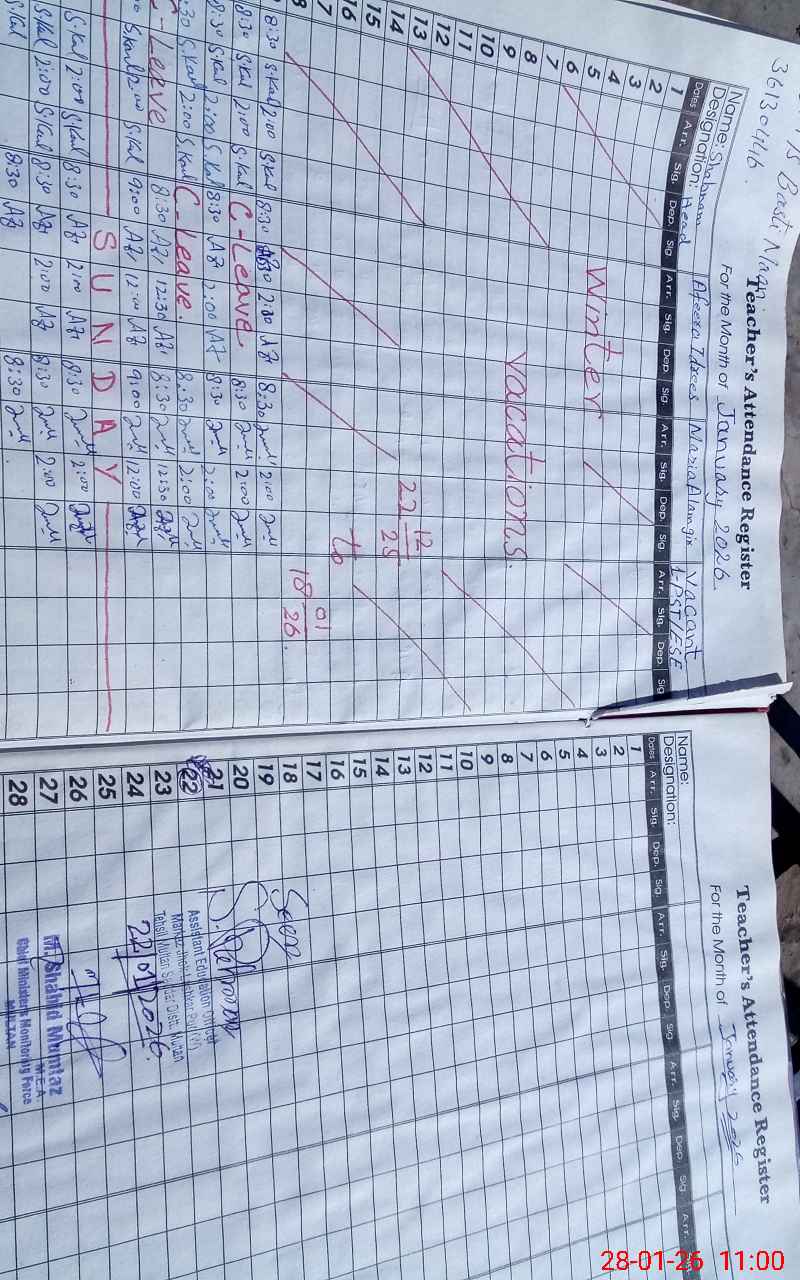 Basti Nagar
36130416
Teacher's Attendance Register
For the Month of January 2026
Name: Shabnam Afeera Idrees Nazia Alamgir Vacant
Designation: Head 1-PST/ESE
Dates Arr. Sig. Dep. Sig Arr. Sig. Dep. Sig Arr. Sig. Dep. Sig. Arr. Sig. Dep. Sig
1
2
3
4
5
6
7
8
9
10
11
12
13
14
15
16
17
Winter
vacations.
22 12 25
to
18 01 26
8:30 S.Kal 2:00 S.Kal 8:30 2:30 AZ 8:30 2:00
8:30 S.Kal 2:00 S.Kal C-Leave 8:30 2:00
8:30 S.Kal 2:00 S.Kal 8:30 AZ 2:00 AZ 8:30 2:00
8:30 S.Kal 2:00 S.Kal C-Leave. 8:30 2:00
C-Leave 8:30 AZ 12:30 AZ 8:30 12:30
S.Kal 12:00 S.Kal 9:00 AZ 12:00 AZ 9:00 12:00
SUNDAY
S.Kal 2:00 S.Kal 8:30 AZ 2:00 AZ 8:30 2:00
S.Kal 2:00 S.Kal 8:30 AZ 2:00 AZ 8:30 2:00
S.Kal 8:30 AZ 8:30
Teacher's Attendance Register
For the Month of January 2026
Name:
Designation:
Dates Arr. Sig. Dep. Sig. Arr. Sig. Dep. Sig. Arr. Sig. Dep. Sig. Arr.
1
2
3
4
5
6
7
8
9
10
11
12
13
14
15
16
17
18
19
20
21
22
23
24
25
26
27
28
Seen
Assistant Education Officer
Tehsil Multan Saddar Distt. Multan
22/01/2026.
M. Shahid Mumtaz
M.E.A.
Chief Minister's Monitoring Force
MULTAN
28-01-26 11:00